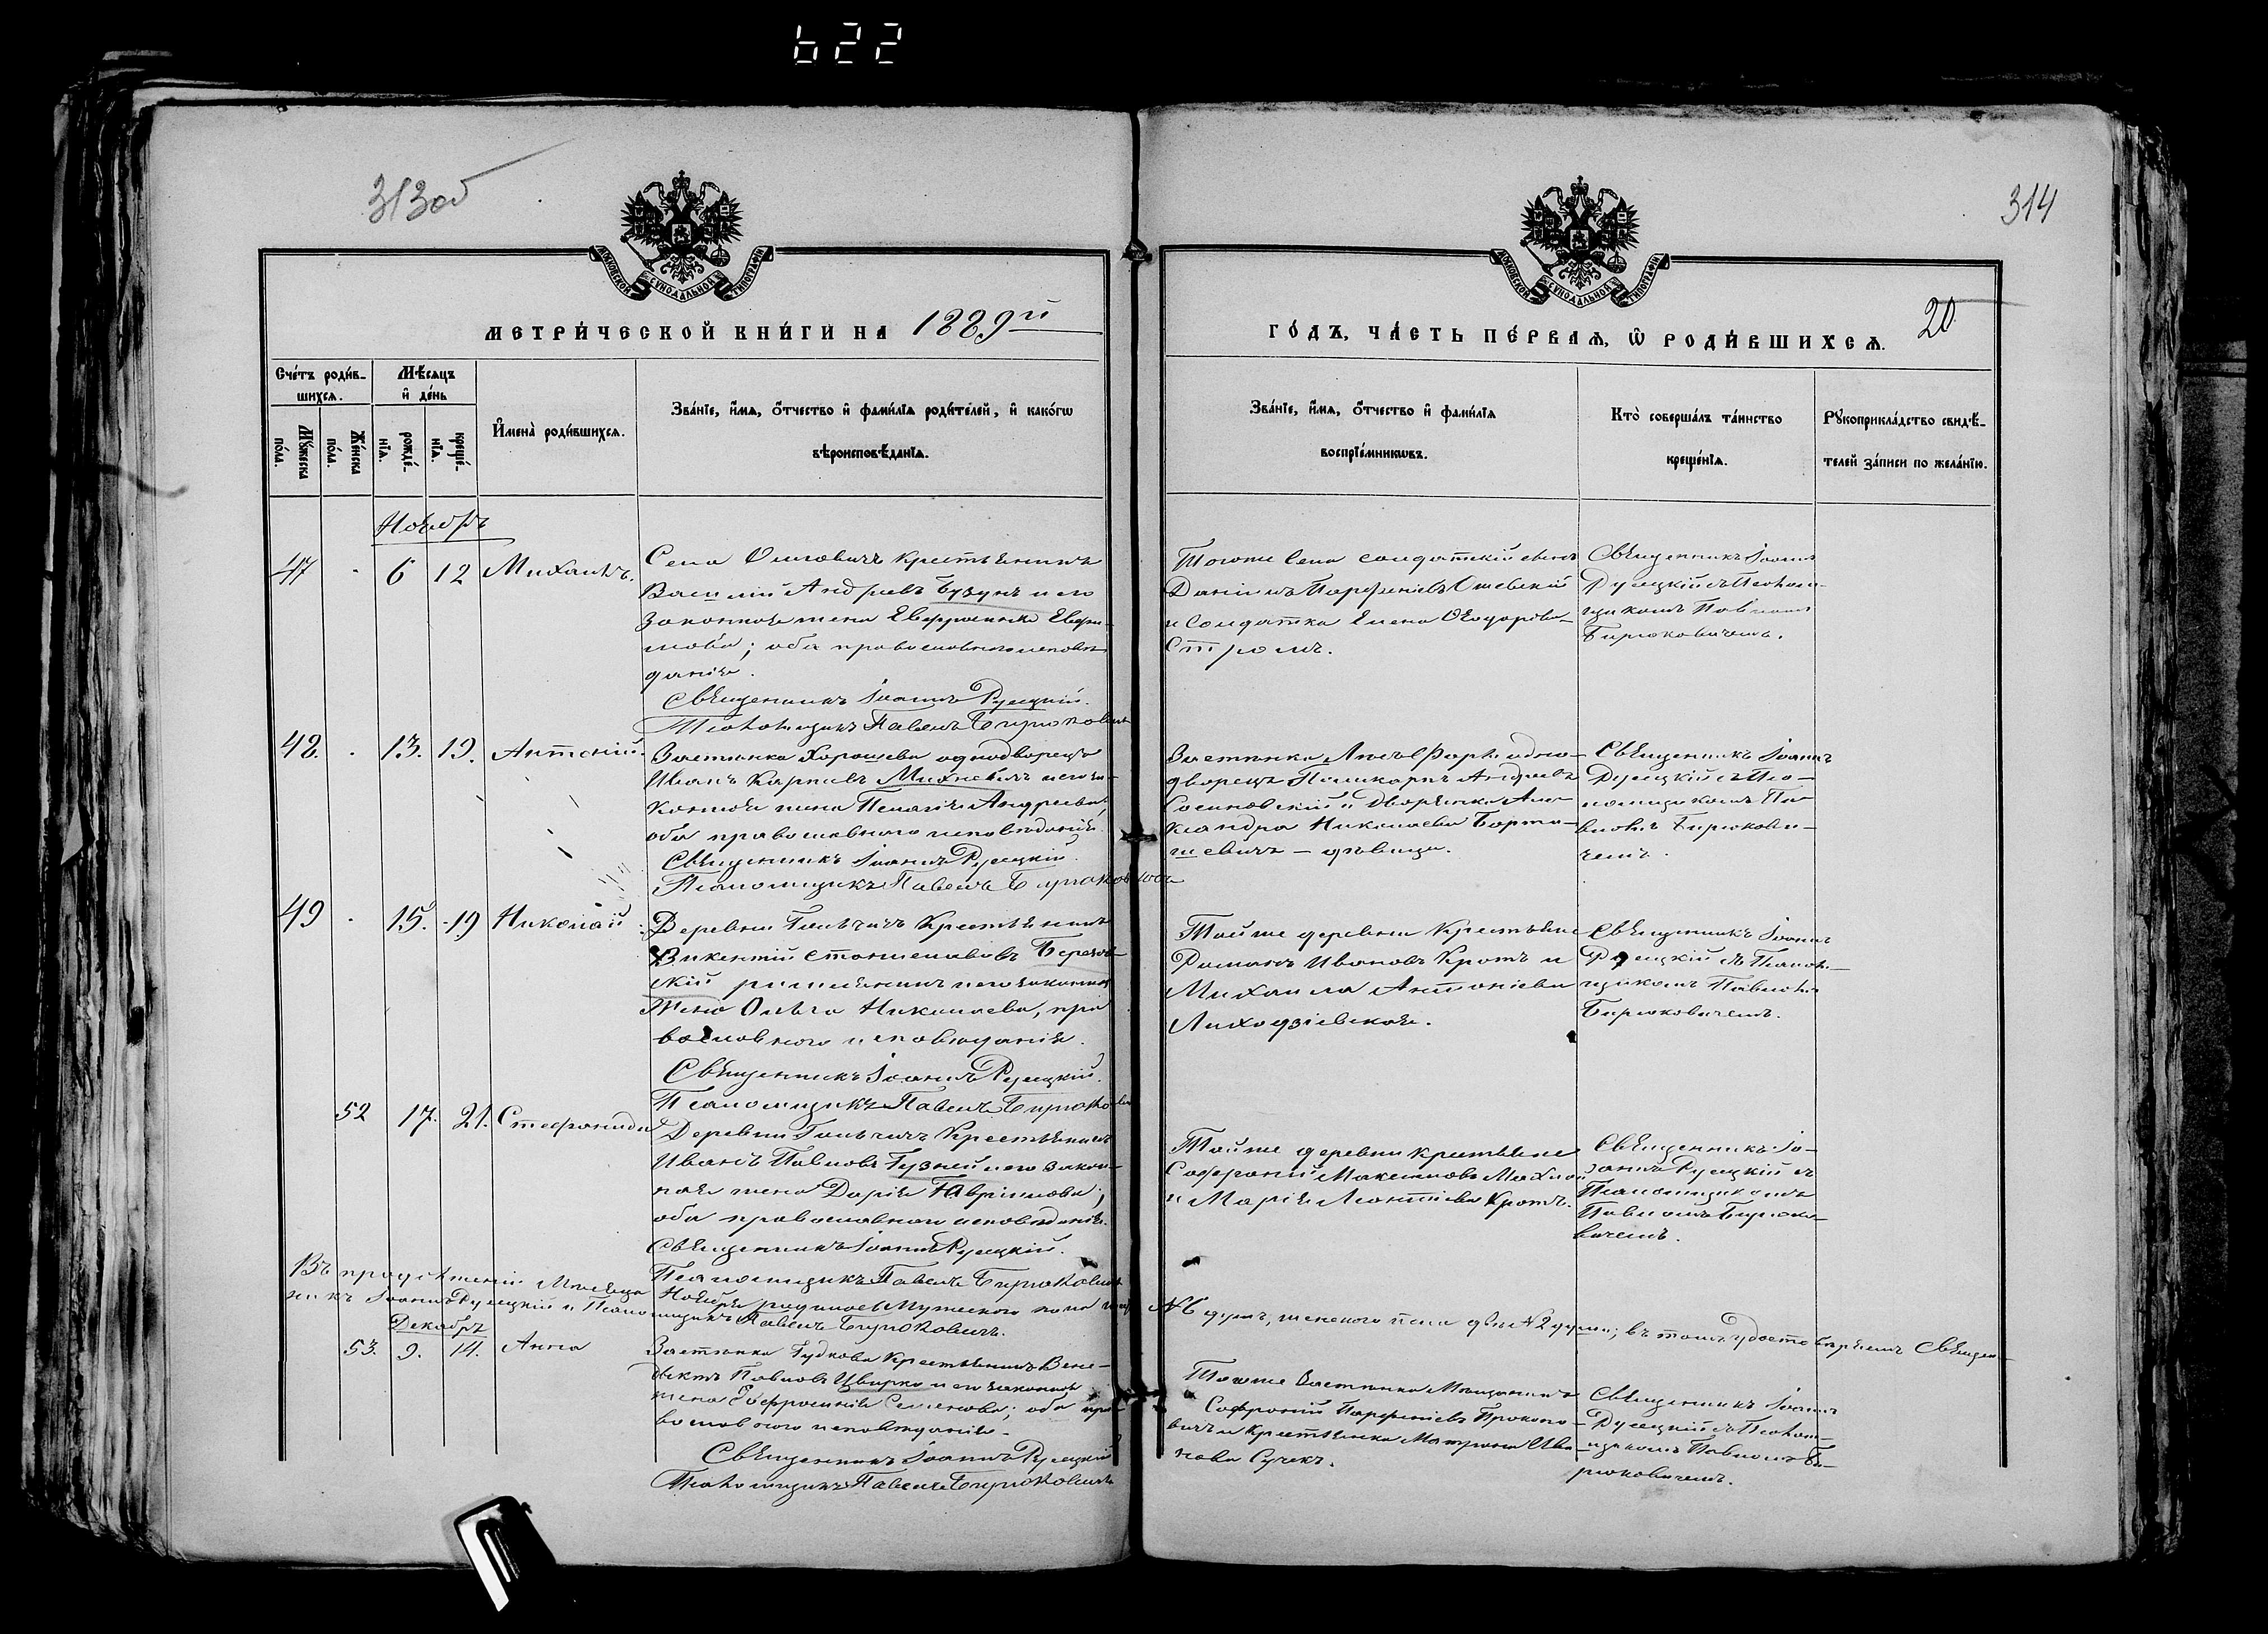 622
313об
314
МОСКОВСКОЙ СУНОДАЛЬНОЙ ТИПОГРАФІИ
МОСКОВСКОЙ СУНОДАЛЬНОЙ ТИПОГРАФІИ
МЕТРИ́ЧЕСКОЙ КНИ́ГИ НА 1889й
ГО́ДЪ, ЧА́СТЬ ПЕ́РВАѦ, Ѡ РОДИ́ВШИХСѦ.
20
Сче́тъ роди́в-
шихсѧ.
Мꙋ́жеска
по́ла.
Же́нска
по́ла.
Мѣ́сѧцъ
и҆ де́нь
рожде́-
нїѧ.
креще́-
нїѧ.
И҆мена̀ роди́вшихсѧ.
Зва́нїе, и҆́мѧ, ѻ҆́тчество и҆ фами́лїѧ роди́телей, и҆ како́гѡ
вѣроисповѣ́данїѧ.
Зва́нїе, и҆́мѧ, ѻ҆́тчество и҆ фами́лїѧ
воспрїе́мникѡвъ.
Кто̀ соверша́лъ та́инство
креще́нїѧ.
Рꙋкоприкла́дство свидѣ́-
телей за́писи по жела́нїю.
Ноябрь
47 - 6 12 Михаилъ.
Села крестьянинъ
Василій Андреевъ Бузунъ и его
законная жена Евфросинія
оба православнаго исповѣ-
данія.
Священникъ Іоаннъ Русецкій.
Псаломщикъ Павелъ Бирюковичъ
Тогоже села солдатскій сынъ
Даніилъ Парфеніевъ
и солдатка Елена Ѳеодорова
Священникъ Іоаннъ
Русецкій съ Псалом-
щикомъ Павломъ
Бирюковичемъ.
48. - 13. 19. Антоній.
Застѣнка Хорошева однодворецъ
Иванъ Карповъ Михневичъ и его за-
конная жена Пелагія Андреева,
оба православнаго исповѣданія.
Священникъ Іоаннъ Русецкій.
Псаломщикъ Павелъ Бирюковичъ
Застѣнка одно-
дворецъ Поликарпъ Андреевъ
Сосновскій и дворянка Але-
ксандра Николаева Барто-
шевичъ – дѣвица.
Священникъ Іоаннъ
Русецкій съ Пса-
ломщикомъ Па-
вломъ Бирюкови-
чемъ.
49 - 15. 19 Николай
Деревни Гольчичъ крестьянинъ
Викентій Станиславовъ Березов-
скій римлянинъ и его законная
жена Ольга Николаева, пра-
вославнаго исповѣданія.
Священникъ Іоаннъ Русецкій.
Псаломщикъ Павелъ Бирюковичъ
Тойже деревни крестьяне
Романъ Ивановъ Кротъ и
Михаила Антоніева
Лиходзіевская.
Священникъ Іоаннъ
Русецкій съ Псалом-
щикомъ Павломъ
Бирюковичемъ.
52 17. 21. Стефанида
Деревни Гольчичъ крестьянинъ
Иванъ Павловъ Гузней и его закон-
ная жена Дарія Гавріилова;
оба православнаго исповѣданія.
Священникъ Іоаннъ Русецкій.
Псаломщикъ Павелъ Бирюковичъ
Тойже деревни крестьяне
Софроній Максимовъ
и Марія Леонтіева Кротъ.
Священникъ Іо-
аннъ Русецкій съ
Псаломщикомъ
Павломъ Бирюко-
вичемъ.
Въ продолженіи мѣсяца Ноября родилось мужескаго пола №6 душъ, женскаго пола двѣ №2 души; въ томъ удостовѣряемъ Священ-
никъ Іоаннъ Русецкій и Псаломщикъ Павелъ Бирюковичъ.
Декабрь
53. 9. 14. Анна
Застѣнка Гудкова крестьянинъ Вене-
диктъ Павловъ Цвирко и его законная
жена Евфросинія Семенова; оба пра-
вославнаго исповѣданія.
Священникъ Іоаннъ Русецкій
Псаломщикъ Павелъ Бирюковичъ
Тогоже застѣнка мѣщанинъ
Софроній Парфеніевъ Прокопо-
вичъ и крестьянка Матрона Ива-
нова Сучекъ.
Священникъ Іоаннъ
Русецкій съ Псалом-
щикомъ Павломъ Би-
рюковичемъ.